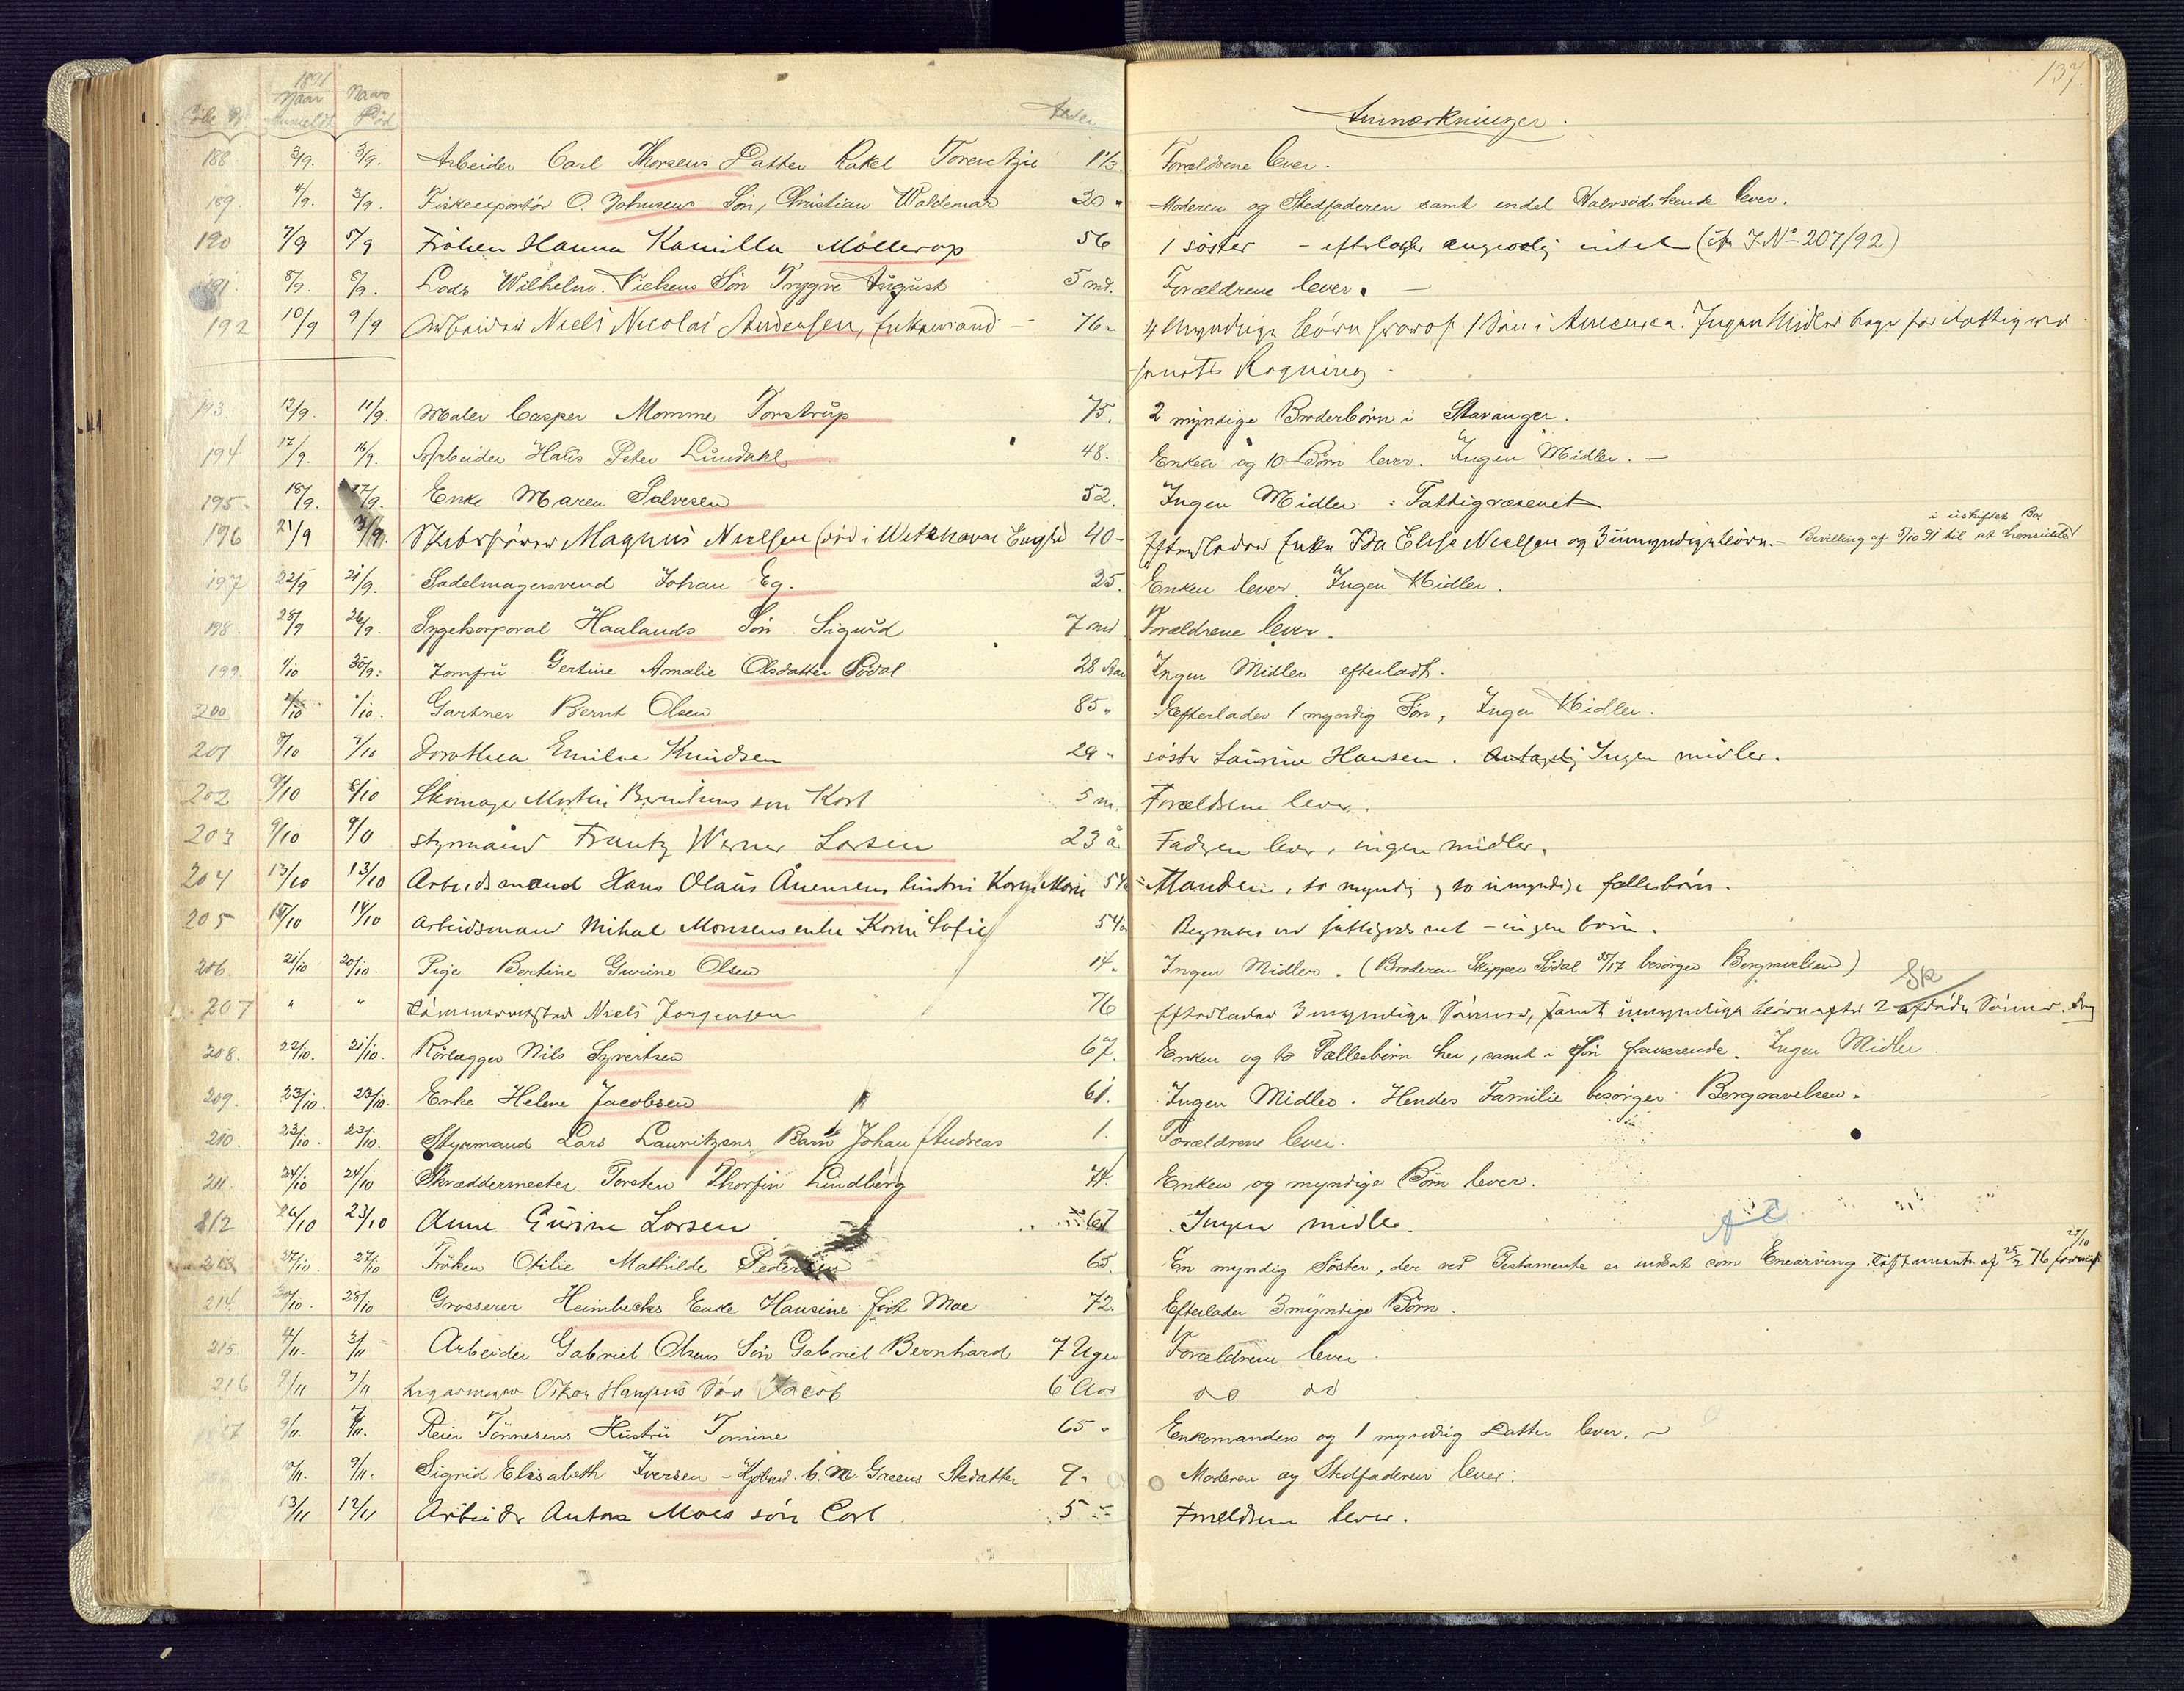 137.
1891
Naar Anmeldt Naar Död Alder
Anmærkninger.
188 3/9. 3/9. Arbeider Carl Thorsens Datter Rakel 1 1/3. Forældrene lever.
189. 4/9. 3/9. Fiskeexportör O. Johnsens Sön, Christian Waldemar 20 " Moderen og Stedfaderen samt endel Halvsödskende lever.
190 7/9 5/9 Fröken Hanna Kamilla Möllerop 56 1 söster - efterlader angivelig intet (cfr J.No 207/92)
191. 8/9. 8/9. Lods Wilhelm Nielsens Sön Trygve August 5 md. Forældrene lever. —
192 10/9 9/9 Arbeider Niels Nicolai Andersen, Enkemand — 76 " 4 Myndige Börn hvoraf 1 Sön i Amerika. Ingen Midler beg. for Fattigvæ
senets Regning.
193. 12/9. 11/9. Maler Casper Momme Torstrup 75. 2 myndige Broderbörn i Stavanger.
194 17/9. 16/9. Arbeider Hans Peter Lundahl 48. Enken og 10 Börn lever. Ingen Midler. —
195. 18/9. 17/9. Enke Maren Salvesen 52. Ingen Midler : Fattigvæsenet
i uskiftet Bo.
196 21/9 3/9. Skibsförer Magnus Nielsen (död i Witehaven Engld 40 - Efterlader Enke Ida Elise Nielsen og 3 umyndige börn. - Bevilling af 5/10 91 til at hensidde
197 22/9 21/9. Sadelmagersvend Johan Eg. 25. Enken lever. Ingen Midler.
198. 28/9 26/9. Haalands Sön Sigurd 7 md Forældrene lever.
199. 1/10 30/9. Jomfru Gertine Amalie Olsdatter Södal 28 Aar Ingen Midler efterladt.
200 2/10 1/10. Gartner Bernt Olsen 85 " Efterlader 1 myndig Sön, Ingen Midler.
201 8/10 7/10 Dorothea Emilie Knudsen 29 " söster Laurine Hansen. Antagelig Ingen midler.
202 9/10 8/10 Skomager Martin Berntsens sön Karl 5 m. Forældrene lever.
203 9/10 9/10 styrmand Frantz Werner Larsen 23 å. Faderen lever, ingen midler.
204 13/10 13/10 Arbeidsmand Hans Olaus Ånensens hustru Karen Marie 54 Manden, to myndig og to umyndige fællesbörn.
205 15/10 14/10 Arbeidsmand Mikal Monsens enke Karen Sofie 54 Begraves ved fattigvæsenet - ingen börn.
206. 21/10 20/10. Pige Bertine Gurine Olsen 14. Ingen Midler. (Broderen Skipper Södal besörger Bergravelsen)
SR
207 " " Tömmermester Niels Jörgensen 76 Efterlader 3 myndige Sönner, samt umyndige börn efter 2 afdöde Sönner.
208. 22/10. 21/10. Rörlægger Nils Syvertsen 67. Enken og to Fællesbörn her, samt 1 Sön fraværende. Ingen Midler.
209. 23/10. 23/10. Enke Helene Jacobsen 61. Ingen Midler. Hendes Familie besörger Bergravelsen.
210. 23/10. 23/10. Styrmand Lars Lauritzens Barn Johan Andreas 1. Forældrene lever.
211. 24/10 24/10 Skræddermester Torsten Thorfin Lindberg 74. Enken og myndige Börn lever.
212 26/10 23/10 Anne Gurine Larsen 67 Ingen midler.
213 27/10. 27/10 Fröken Otilie Mathilde Pedersen 65. En myndig Söster, der ved Testamente er indsat som Enearving. Testamente af 25/2 76
214 30/10. 28/10 Grosserer Heimbecks Enke Hansine född Moe 72. Efterlader 3 myndige Börn.
215 4/11. 3/11 Arbeider Gabriel Olsens Sön Gabriel Bernhard 7 Uger Forældrene lever.
216 9/11 7/11 Oskar Hansens Sön Jacob 6 Aar do do
217 9/11. 7/11. Reier Tönnesens Hustru Tomine 65 " Enkemanden og 1 myndig Datter lever. ~
11/11. 9/11. Sigrid Elisabeth Iversen - C. M. Greens Stedatter 9 " Moderen og Stedfaderen lever.
13/11 12/11 Arbeider Antons Moes sön Carl 5 " Forældrene lever.